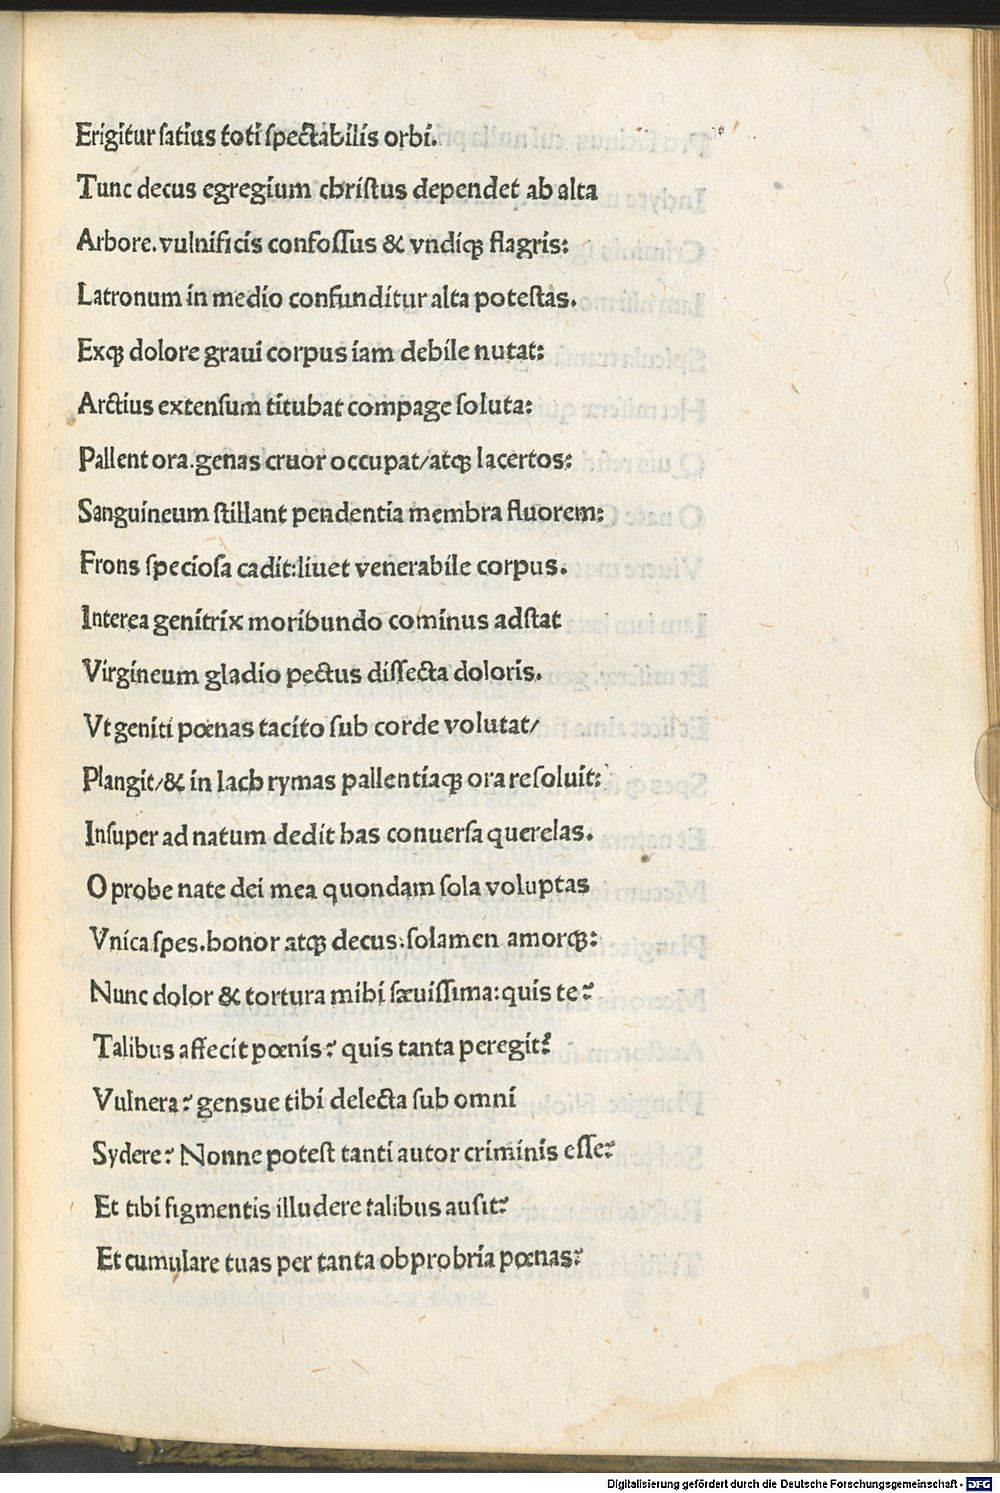 Erigitur ſatius toti ſpectabilis orbi.
Tunc decus egregium chriſtus dependet ab alta
Arbore. vulnificis confoſſus & vndiqꝫ flagris:
Latronum in medio confunditur alta poteſtas.
Exqꝫ dolore graui corpus iam debile nutat:
Arctius extenſum titubat compage ſoluta:
Pallent ora. genas cruor occupat/atqꝫ lacertos:
Sanguineum ſtillant pendentia membra fluorem:
Frons ſpecioſa cadit: liuet venerabile corpus.
Interea genitrix moribundo cominus adſtat
Virgineum gladio pectus diſſecta doloris.
Vt geniti pœnas tacito ſub corde volutat/
Plangit/& in lachrymas pallentiaqꝫ ora reſoluit:
Inſuper ad natum dedit has conuerſa querelas.
O probe nate dei mea quondam ſola voluptas
Vnica ſpes. honor atqꝫ decus. ſolamen amorqꝫ:
Nunc dolor & tortura mihi ſæuiſſima: quis te?
Talibus affecit pœnis? quis tanta peregit?
Vulnera? gensue tibi delecta ſub omni
Sydere? Nonne poteſt tanti autor criminis eſſe?
Et tibi figmentis illudere talibus auſit?
Et cumulare tuas per tanta obprobria pœnas?
Digitalisierung gefördert durch die Deutsche Forschungsgemeinschaft - DFG